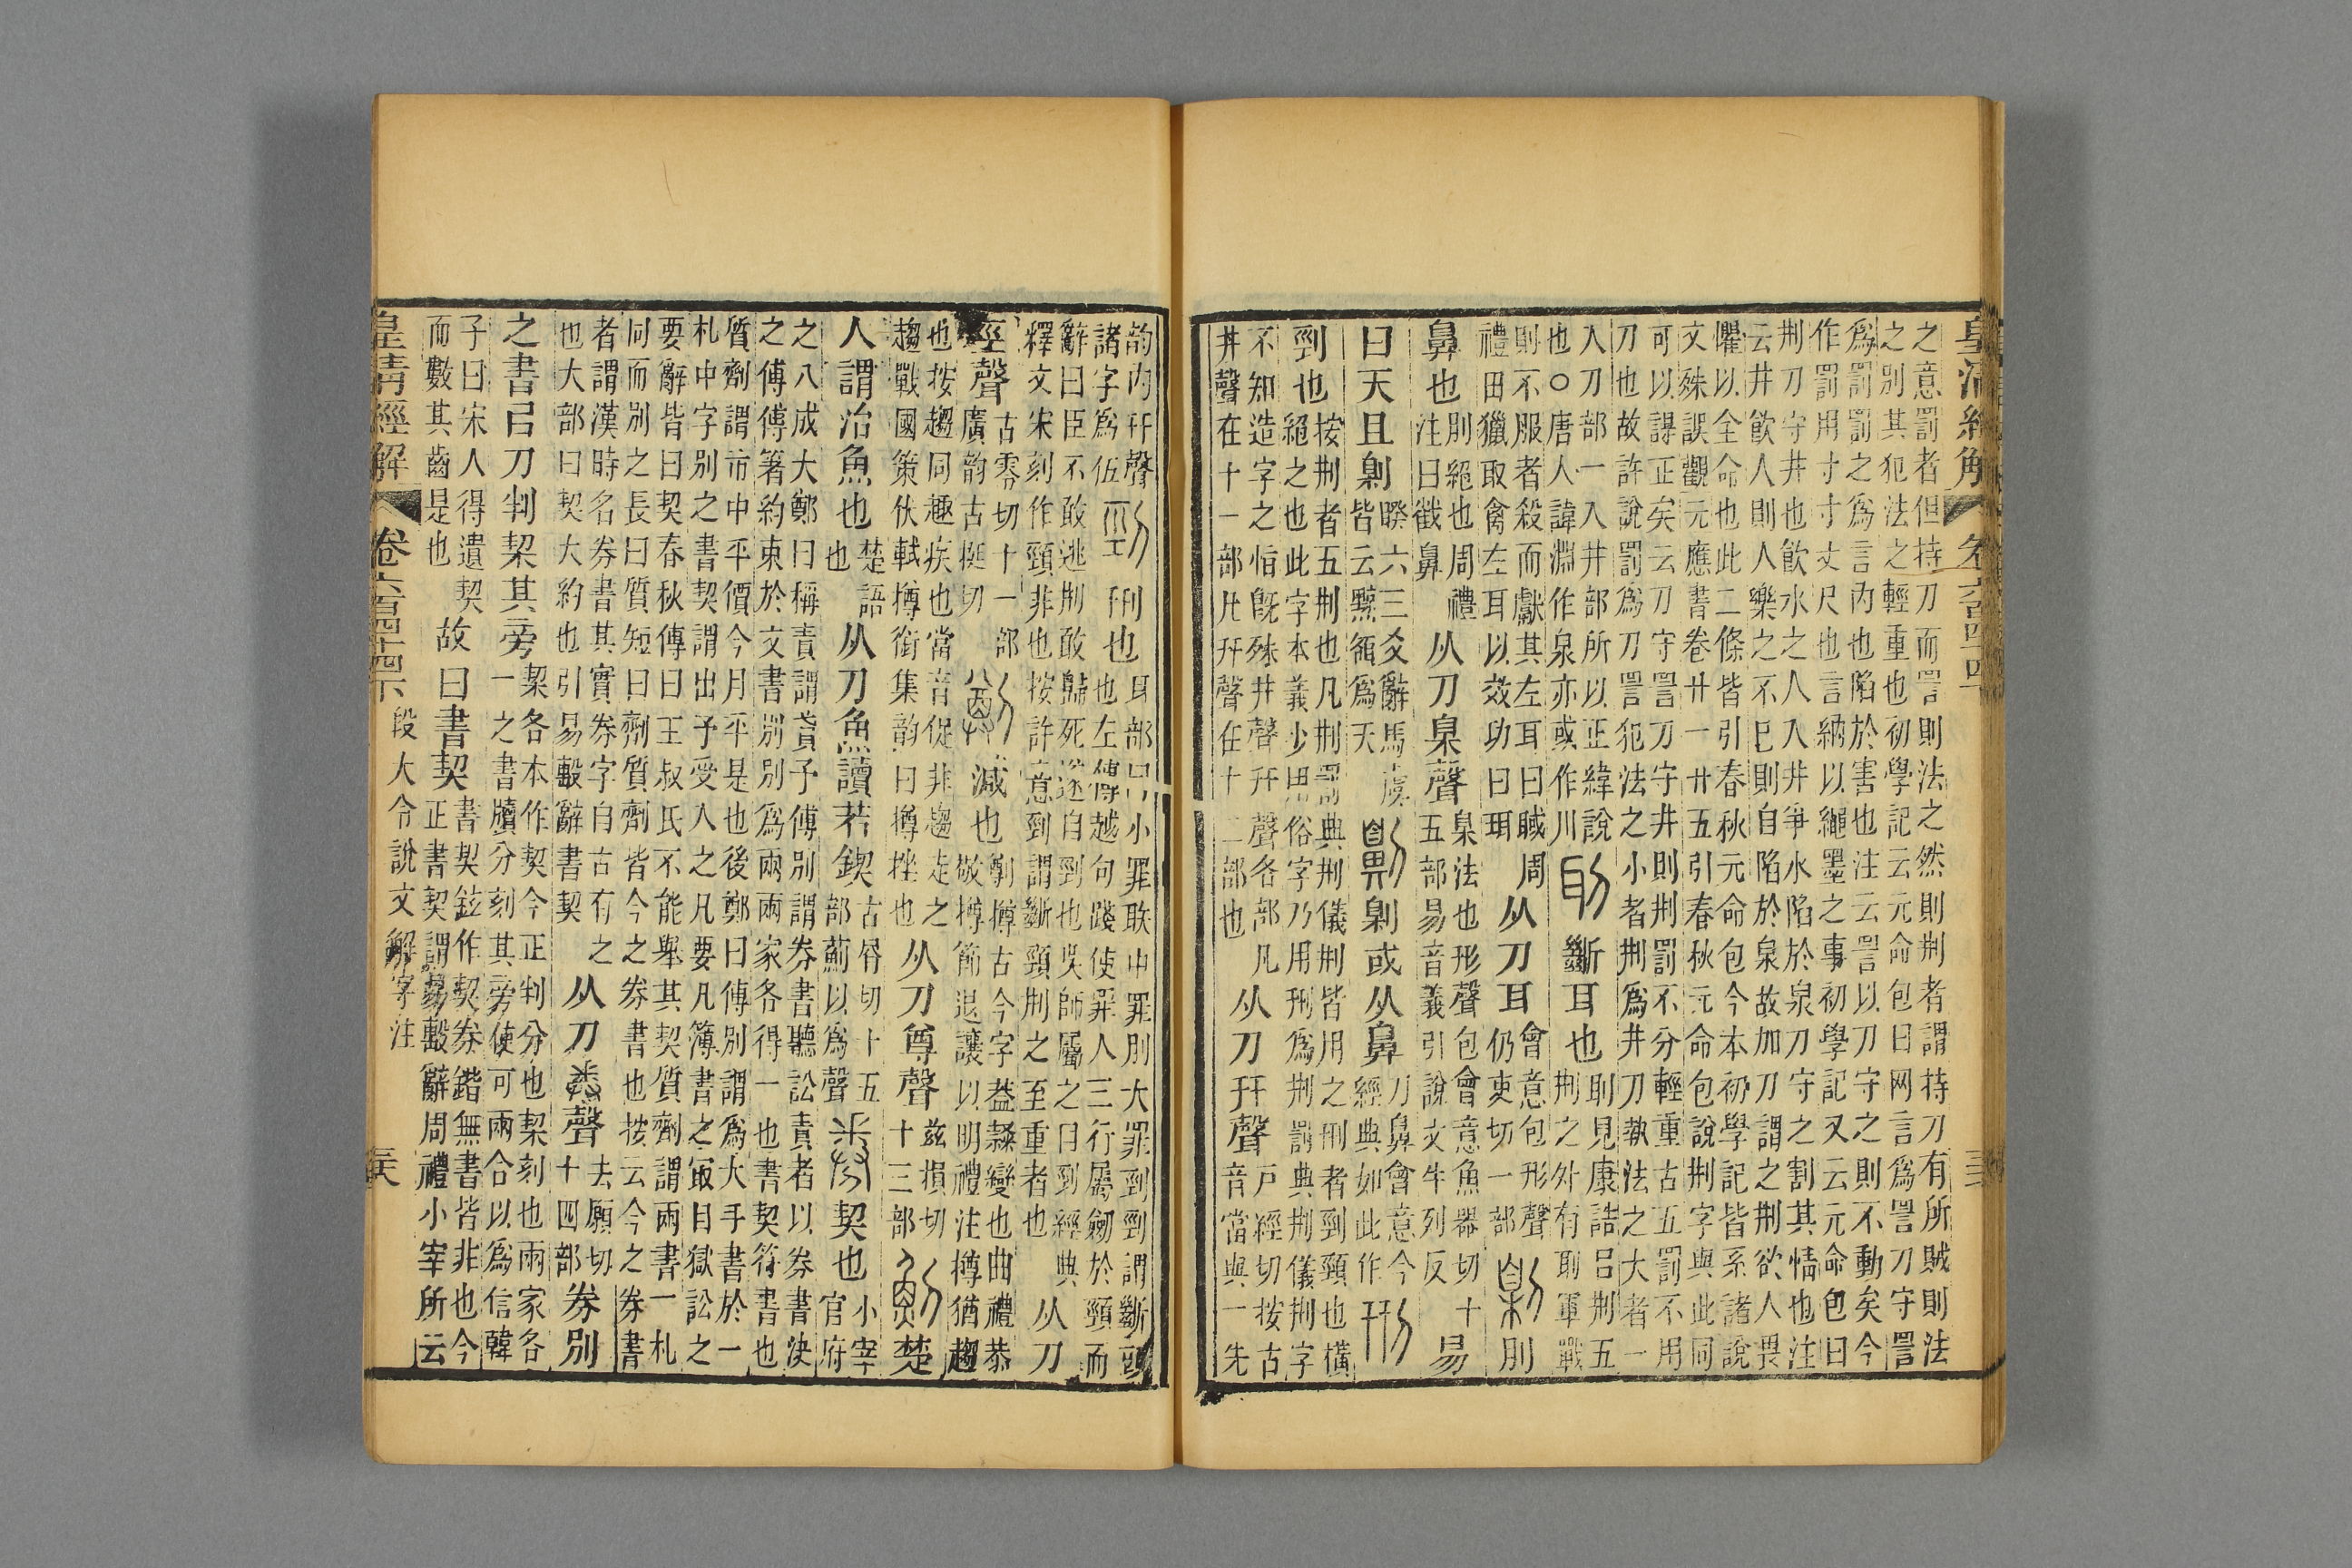 皇清經解 卷六百四十四下
之意罰者但持刀而詈則法之然則荆者謂持刀有所賊則法
之別其犯法之輕重也初學記云元命包曰网言爲詈刀守詈
爲罰罰之爲言内也陷於害也注云詈以刀守之則不動矣今
作罰用寸寸丈尺也言納以繩墨之事初學記又云元命包曰
荆刀守井也飲水之人入井爭水陷於泉刀守之割其情也注
云井飲人則人樂之不巳則自陷於泉故加刀謂之荆欲人畏
懼以全命也此二條皆引春秋元命包今本初學記皆系諸說
文殊誤觀元應書卷廿一廿五引春秋元命包說荆字與此同
可以諤正矣云刀守詈刀守井則荆罰不分輕重古五罰不用
刀也故許說罰爲刀詈犯法之小者荆爲井刀執法之大者一
入刀部一入井部所以正緯說
也○唐人諱淵作泉亦或作川
刵斷耳也
刵見康誥吕荆五
荆之外有刵軍戰
則不服者殺而獻其左耳曰聝周
禮田獵取禽左耳以效功曰珥
从刀耳
會意包形聲
仍吏切一部
劓刖
鼻也
刖絕也周禮
注曰截鼻
从刀臬聲
臬法也形聲包會意魚器切十
五部易音義引說文牛列反
易
曰天且劓
睽六三爻辭馬虞
皆云黥額爲天
劓劓或从鼻
刀鼻會意今
經典如此作
刑
剄也
按荆者五荆也凡荆罰典荆儀荆皆用之刑者剄頸也橫
絕之也此字本義少用俗字乃用刑爲荆罰典荆儀荆字
不知造字之恉旣殊井聲幵聲各部凡
井聲在十一部凡幵聲在十二部也
从刀幵聲
戶經切按古
音當與一先
韵内幵聲
諸字爲伍
剄刑也
耳部曰小罪聅中罪刖大罪剄剄謂斷頭
也左傳越句踐使罪人三行屬劒於頸而
辭曰臣不敢逃荆敢歸死遂自剄也吳師屬之目剄經典
釋文宋刻作頸非也按許意剄謂斷頸荆之至重者也
从刀
巠聲
古零切十一部
廣韵古挺切
減也
劕撙古今字葢隸變也曲禮恭
敬撙節退讓以明禮注撙猶趨
也按趨同趣疾也當音促非趨走之
趨戰國策伏軾撙銜集韵曰撙挫也
从刀尊聲
茲損切
十三部
楚
人謂治魚也
楚語
也
从刀魚讀若鍥
古屑切十五
部薊以爲聲
券契也
小宰
官府
之八成大鄭曰稱責謂貣予傅別謂券書聽訟責者以券書決
之傅傅著約束於文書別別爲兩兩家各得一也書契符書也
質劑謂市中平價今月平是也後鄭曰傅別謂爲大手書於一
札中字別之書契謂出予受入之凡要凡簿書之冣目獄訟之
要辭皆曰契春秋傳曰王叔氏不能舉其契質劑謂兩書一札
同而別之長曰質短曰劑質劑皆今之券書也按云今之券書
者謂漢時名券書其實券字自古有之
也大部曰契大約也引易毄辭書契
从刀𢍏聲
去願切
十四部
券別
之書㠯刀判契其旁
契各本作契今正判分也契刻也兩家各
一之書牘分刻其旁使可兩合以爲信韓
子曰宋人得遺契
而數其齒是也
故曰書契
書契鉉作契券鍇無書皆非也今
正書契謂易毄辭周禮小宰所云
皇清經解 卷六百四十四下 段大令說文解字注